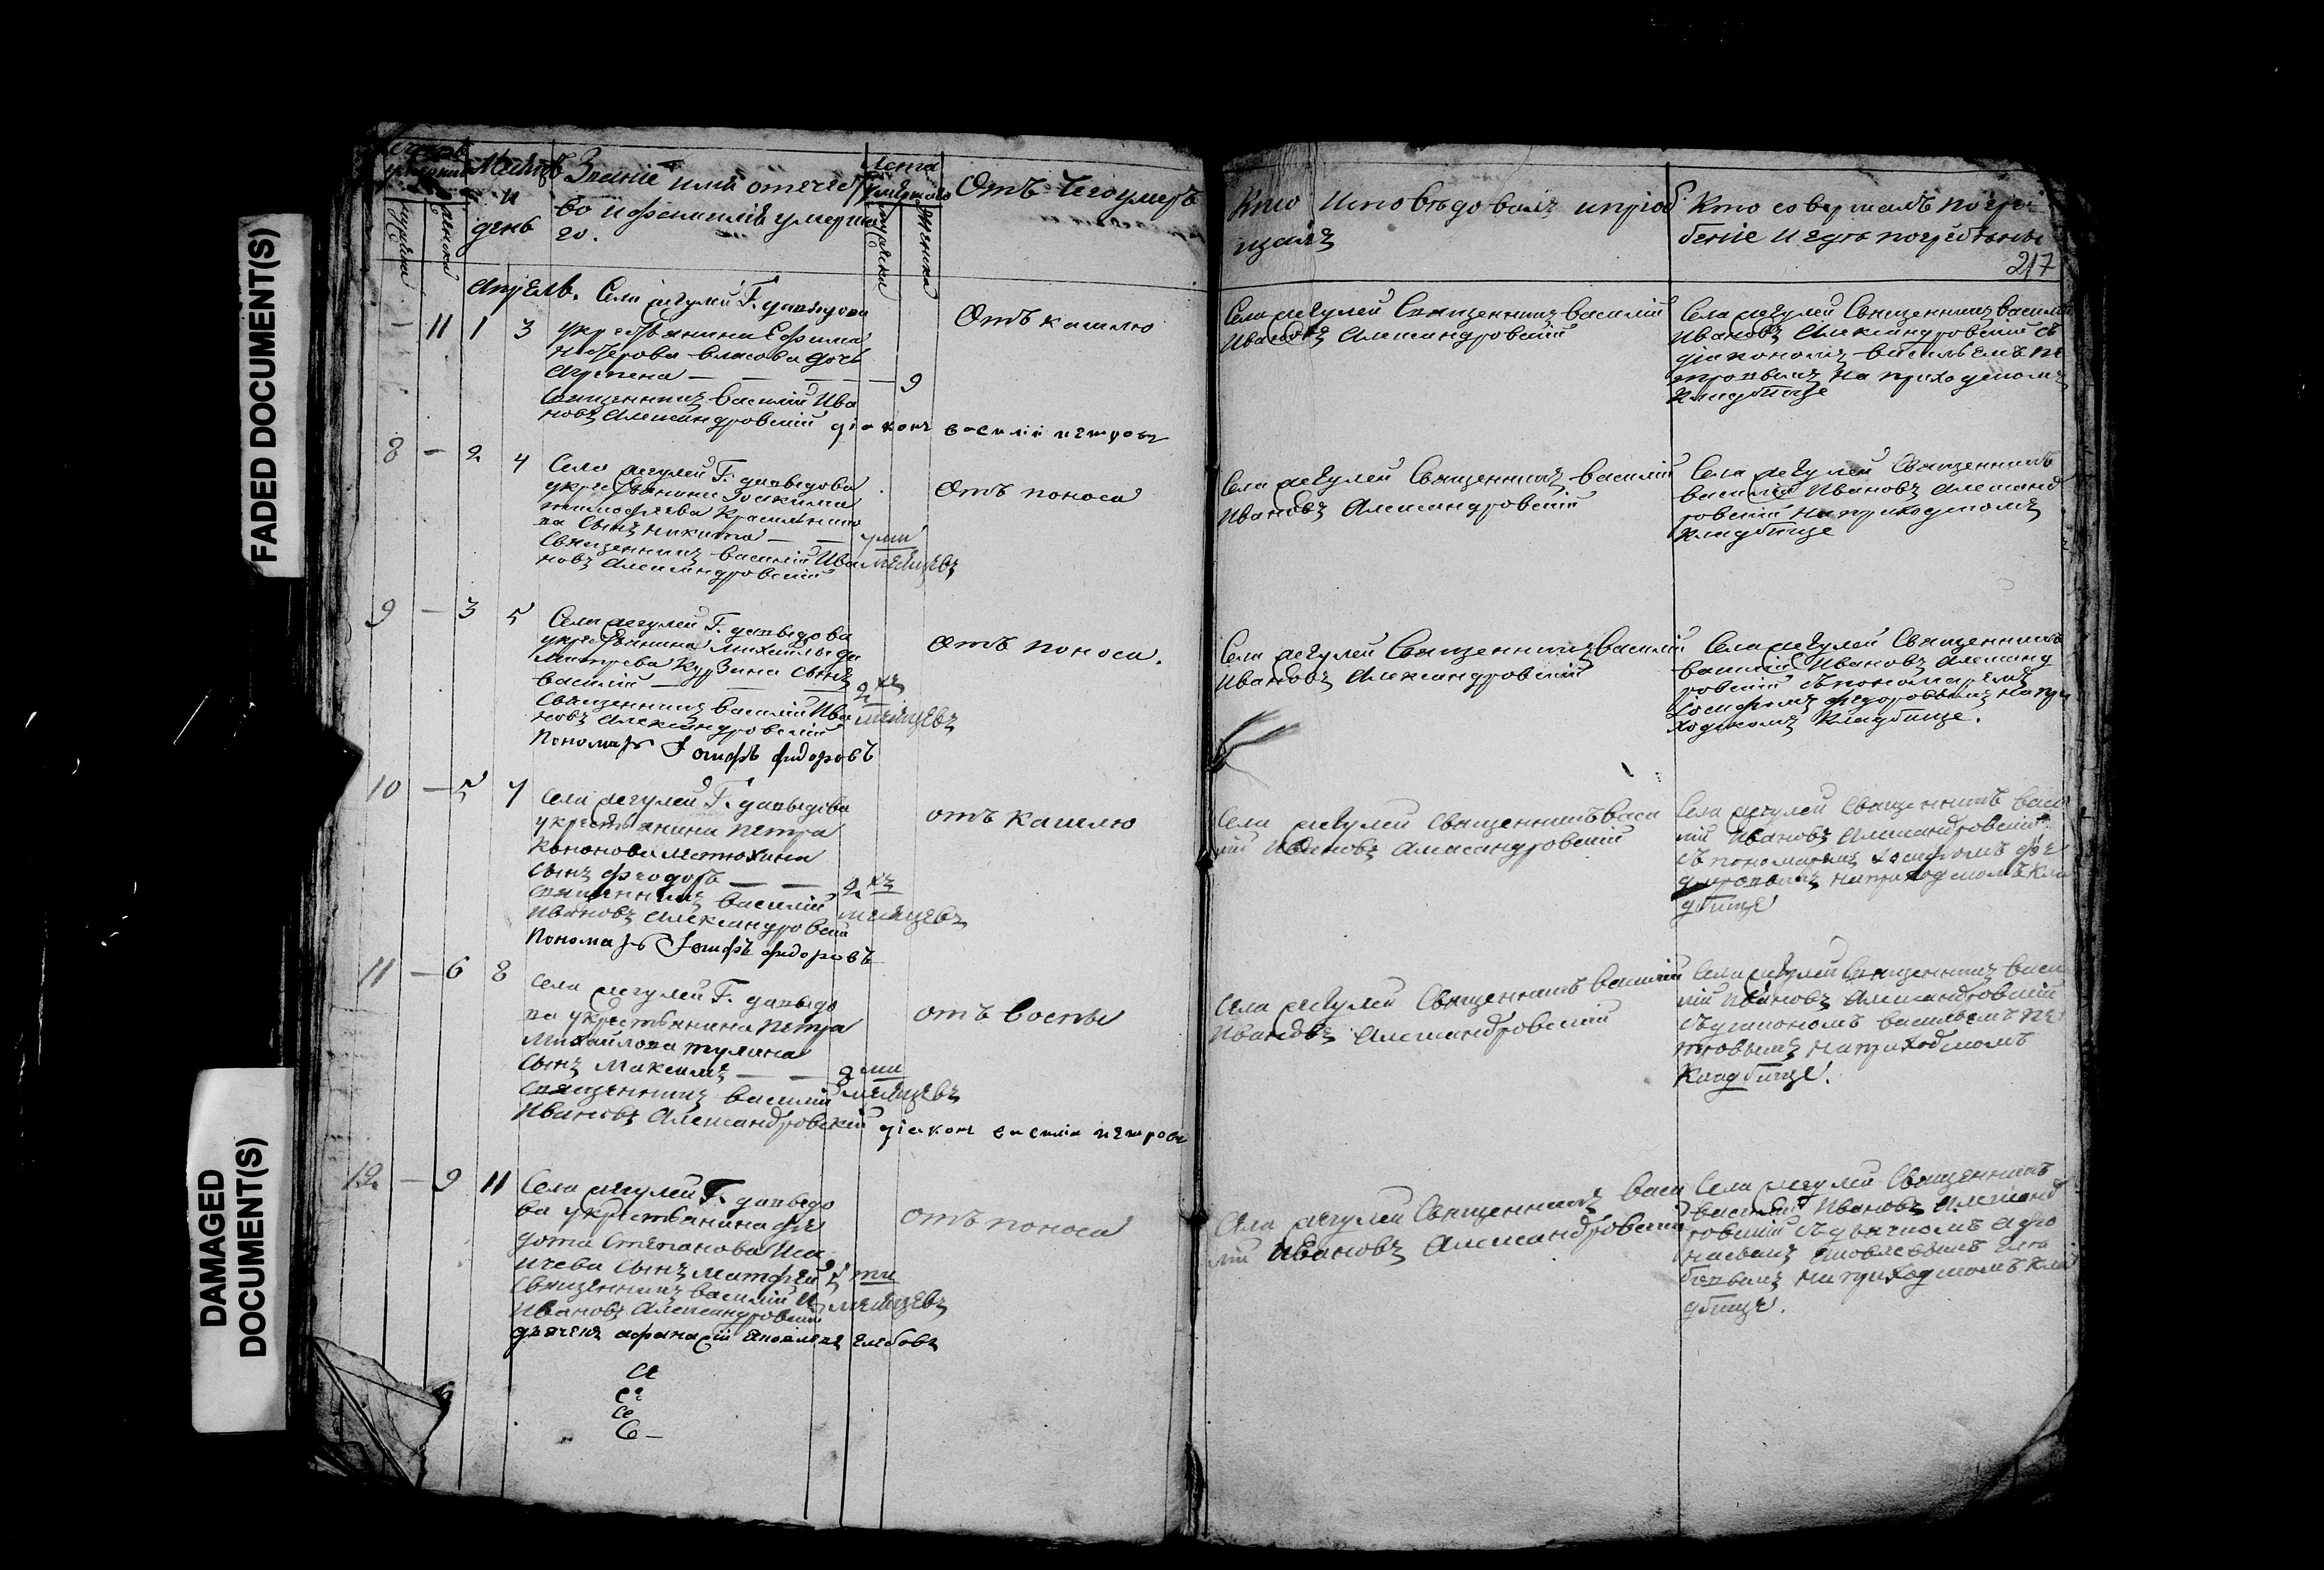 FADED DOCUMENT(S)
DAMAGED
DOCUMENT(S)
и
день
Званіе имя отечест
во и фамилія умерша
го.
Лета
умершаго
Отъ чего умеръ
Кто Исповѣдовалъ и пріоб
щалъ
Кто совершалъ погре
беніе и где погребены
217
Апрель.
- 11 1 3
Села Регулей Г. давыдова
у крестьянина Ефима
власова дочь
— — — 9
Священникъ василій Ива
новъ Александровскій діаконъ василій петровъ
Отъ кашлю
Села Регулей Священникъ василій
Ивановъ Александровскій
Села Регулей Священникъ василій
Ивановъ Александровскій съ
діакономъ васильемъ пе
тровымъ на приходскомъ
Кладбище
8 — 2 4
Села Регулей Г. давыдова
у крестьянина Іоакима
тимофеева
Сынъ никита — — 7 ми
Священникъ василій Ива месяцевъ
новъ Александровскій
Отъ поноса
Села Регулей Священникъ василій
Ивановъ Александровскій
Села Регулей Священникъ
василій Ивановъ Александ
ровскій на приходскомъ
Кладбище
9 — 3 5
Села Регулей Г. давыдова
у крестьянина михайлы ди
митрева Курзина сынъ
василій — — 2 хъ
Священникъ василій Ива месяцевъ
новъ Александровскій
Пономарь Іосифъ федоровъ
Отъ поноса.
Села Регулей Священникъ василій
Ивановъ Александровскій
Села Регулей Священникъ
василій Ивановъ Александ
ровскій съ пономаремъ
Іосифомъ федоровымъ на при
ходскомъ Кладбище.
10 — 5 7
Села Регулей Г. давыдова
у крестьянина петра
Кононова матюхина
сынъ феодоръ — — 2 хъ
священникъ василій месяцевъ
Ивановъ Александровскій
Пономарь Іосифъ федоровъ
отъ кашлю
Села Регулей священникъ васи
лій Ивановъ Александровскій
Села Регулей священникъ васи
лій Ивановъ Александровскій
съ пономаремъ Іосифомъ фе
доровымъ на приходскомъ кла
дбище
11 — 6 8
Села Регулей Г. давыдо
ва у крестьянина петра
Михайлова тулина
сынъ Максимъ — — 8 ми
священникъ василій месяцевъ
Ивановъ Александровскій діаконъ василій петровъ
отъ воспы
Села Регулей Священникъ василій
Ивановъ Александровскій
Села Регулей Священникъ васи
лій Ивановъ Александровскій
съ діакономъ васильемъ пе
тровымъ на приходскомъ
Кладбище.
12 — 9 11
Села Регулей Г. давыдо
ва у крестьянина фе
дота Степанова Иса
ичева сынъ матфей 5 ти
Священникъ василій месяцевъ
Ивановъ Александровскій
дьячекъ афанасій яковлевъ глебовъ
отъ поноса
Села Регулей Священникъ васи
лій Ивановъ Александровскій
Села Регулей Священникъ
василій Ивановъ Александ
ровскій съ дьячкомъ афо
насьемъ яковлевымъ гле
бовымъ на приходскомъ кла
дбище.